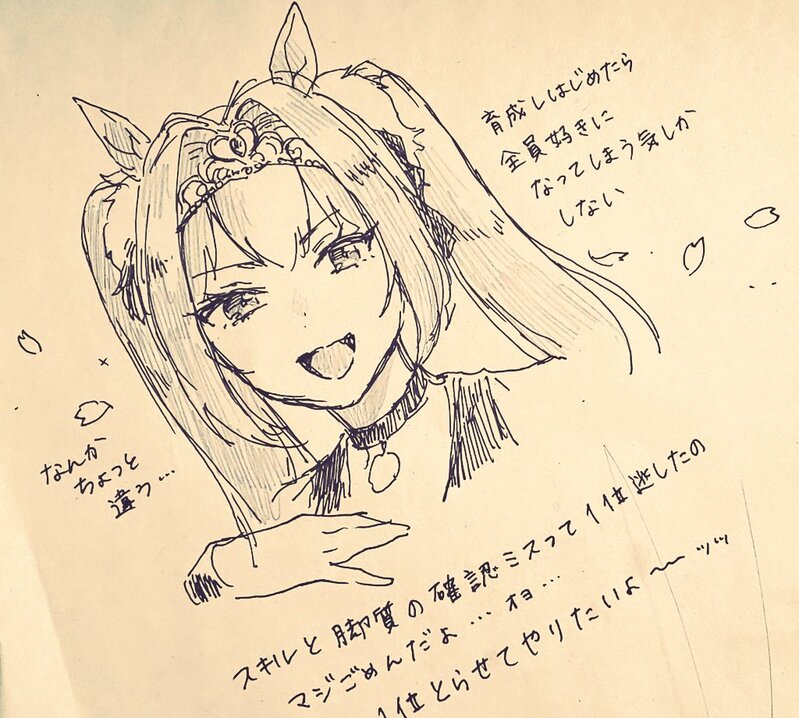 育成しはじめたら
全員好きに
なってしまう気しか
しない
なんか
ちょっと
違う…
スキルと脚質の確認ミスって1位逃したの
マジごめんだよ…オヨ…
1位とらせてやりたいよ〜〜ッッ